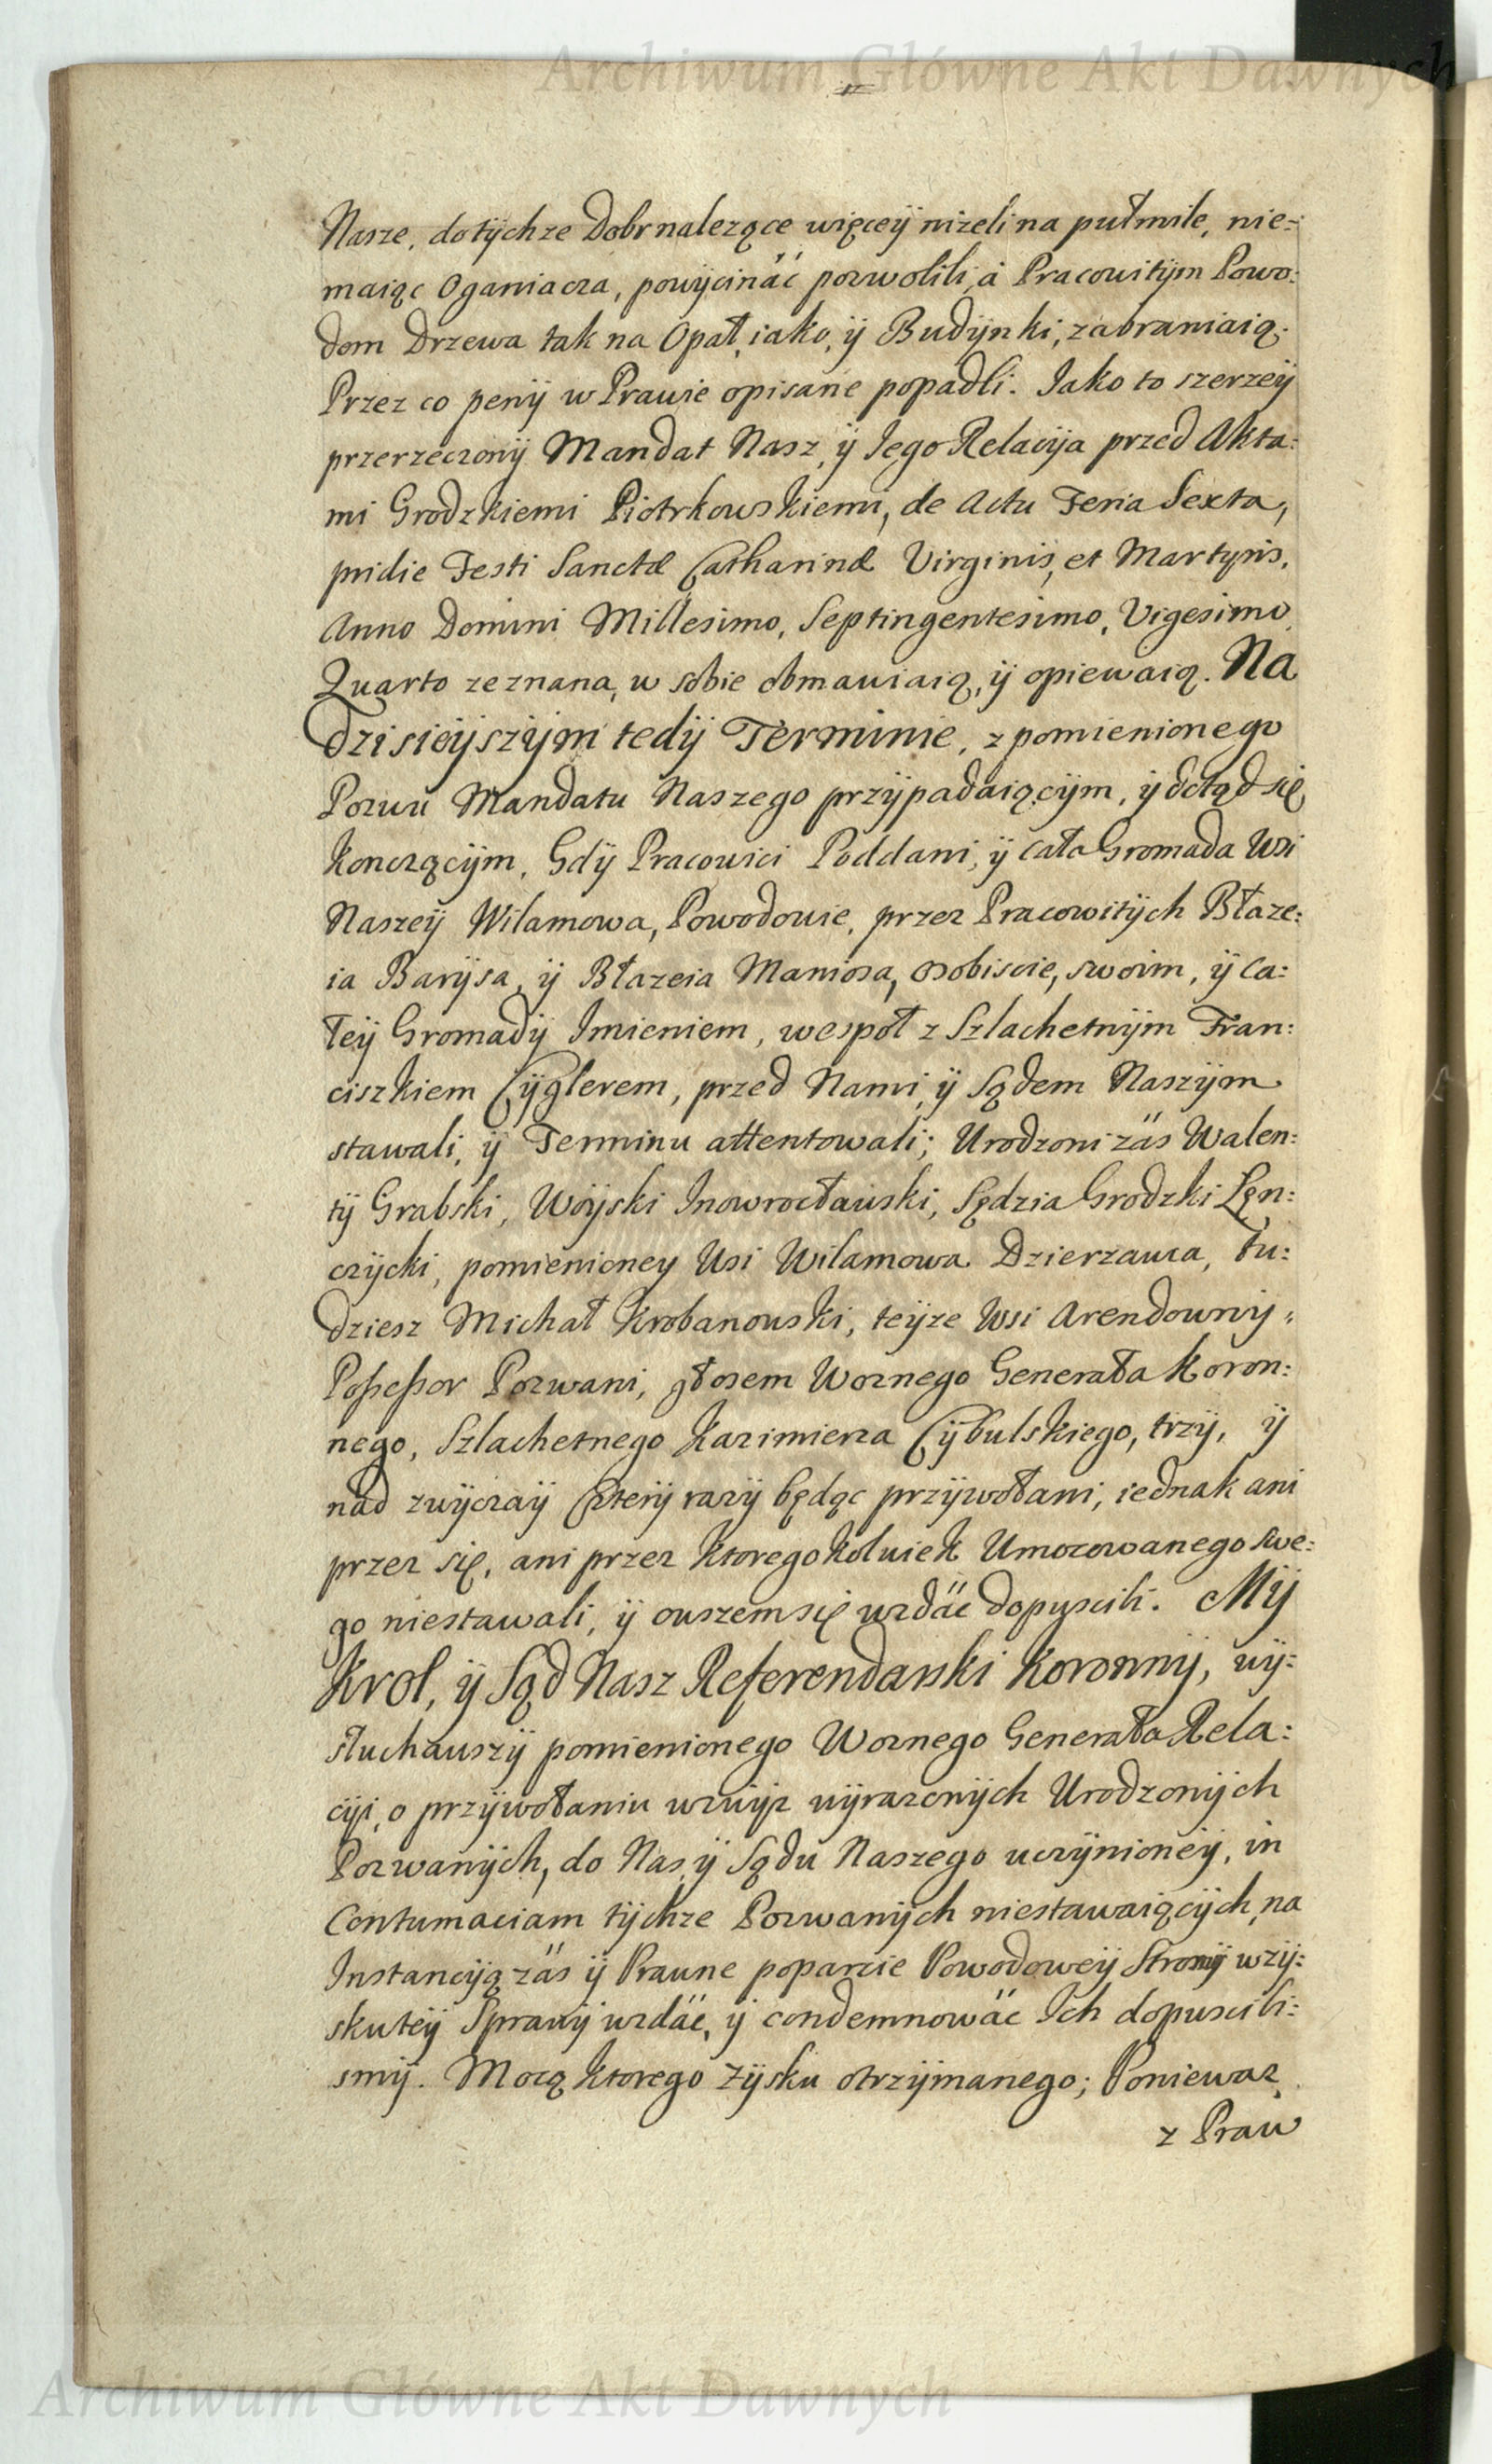 Archiwum Główne Akt Dawnych
Nasze, do tÿchze Dobr nalezące więceÿ nizeli na pułmile, nie-
maiąc Oganiacza, powÿcináć pozwolili, á Pracowitÿm Powo:
dom Drzewa tak na Opał, iako, ÿ Budÿnki, zabraniaią.
Przez co penÿ w Prawie opisane popadli. Jako to szerzeÿ
przerzeczonÿ Mandat Nasz, ÿ Jego Relacÿa przed Akta:
mi Grodzkiemi Piotrkowskiemi, de Actu Feria Sexta,
pridie Festi Sanctæ Catharinæ Virginis, et Martyris,
Anno Domini Millesimo, Septingentesimo, Vigesimo
Quarto zeznana, w sobie obmawiaią, ÿ opiewaią. Na
dzisieÿszÿm tedÿ Terminie, z pomienionego
Pozwu Mandatu Naszego przÿpadaiącÿm, ÿ dotąd się
konczącÿm, Gdÿ Pracowici Poddani, ÿ cała Gromada Wsi
Naszeÿ Wilamowa, Powodowie, przez Pracowitÿch Błaze:
ia Barÿsa, ÿ Błazeia Mamosa, osobiscie, swoim, ÿ ca:
łeÿ Gromadÿ Imieniem, wespoł z Szlachetnÿm Fran:
ciszkiem Cÿglerem, przed Nami, ÿ Sądem Naszÿm
stawali, ÿ Terminu attentowali; Urodzoni zäs Walen:
tÿ Grabski, Woÿski Inowrocławski, Sędzia Grodzki Lęn:
czÿcki, pomienioney Wsi Wilamowa Dzierzawca, tu:
dziesz Michał Krobanowski, teÿze Wsi Arendownÿ
Possessor Pozwani, głosem Woznego Generała Koron:
nego, Szlachetnego Kazimierza Cÿbulskiego, trzÿ, ÿ
nad zwÿczaÿ Czterÿ razÿ będąc przÿwołani, iednak ani
przez się, ani przez ktoregokolwiek Umocowanego swe:
go niestawali, ÿ owszem się wzdäć dopuscili. MŸ
Krol, ÿ Sąd Nasz Referendarski Koronnÿ, wÿ:
słuchawszÿ pomienionego Woznego Generała Rela:
cÿi, o przÿwołaniu wzwÿż wÿrazonÿch Urodzonÿch
Pozwanÿch, do Nas, ÿ Sądu Naszego uczÿnioneÿ, in
Contumaciam tÿchze Pozwanÿch niestawaiącÿch, na
Instancÿą zäs ÿ Prawne poparcie Powodoweÿ Stronÿ wzÿ:
skuteÿ Sprawÿ wzdäć, ÿ condemnowäć Ich dopuscili:
smÿ. Mocą ktorego zÿsku otrzÿmanego; Poniewaz
z Praw
Archiwum Główne Akt Dawnych